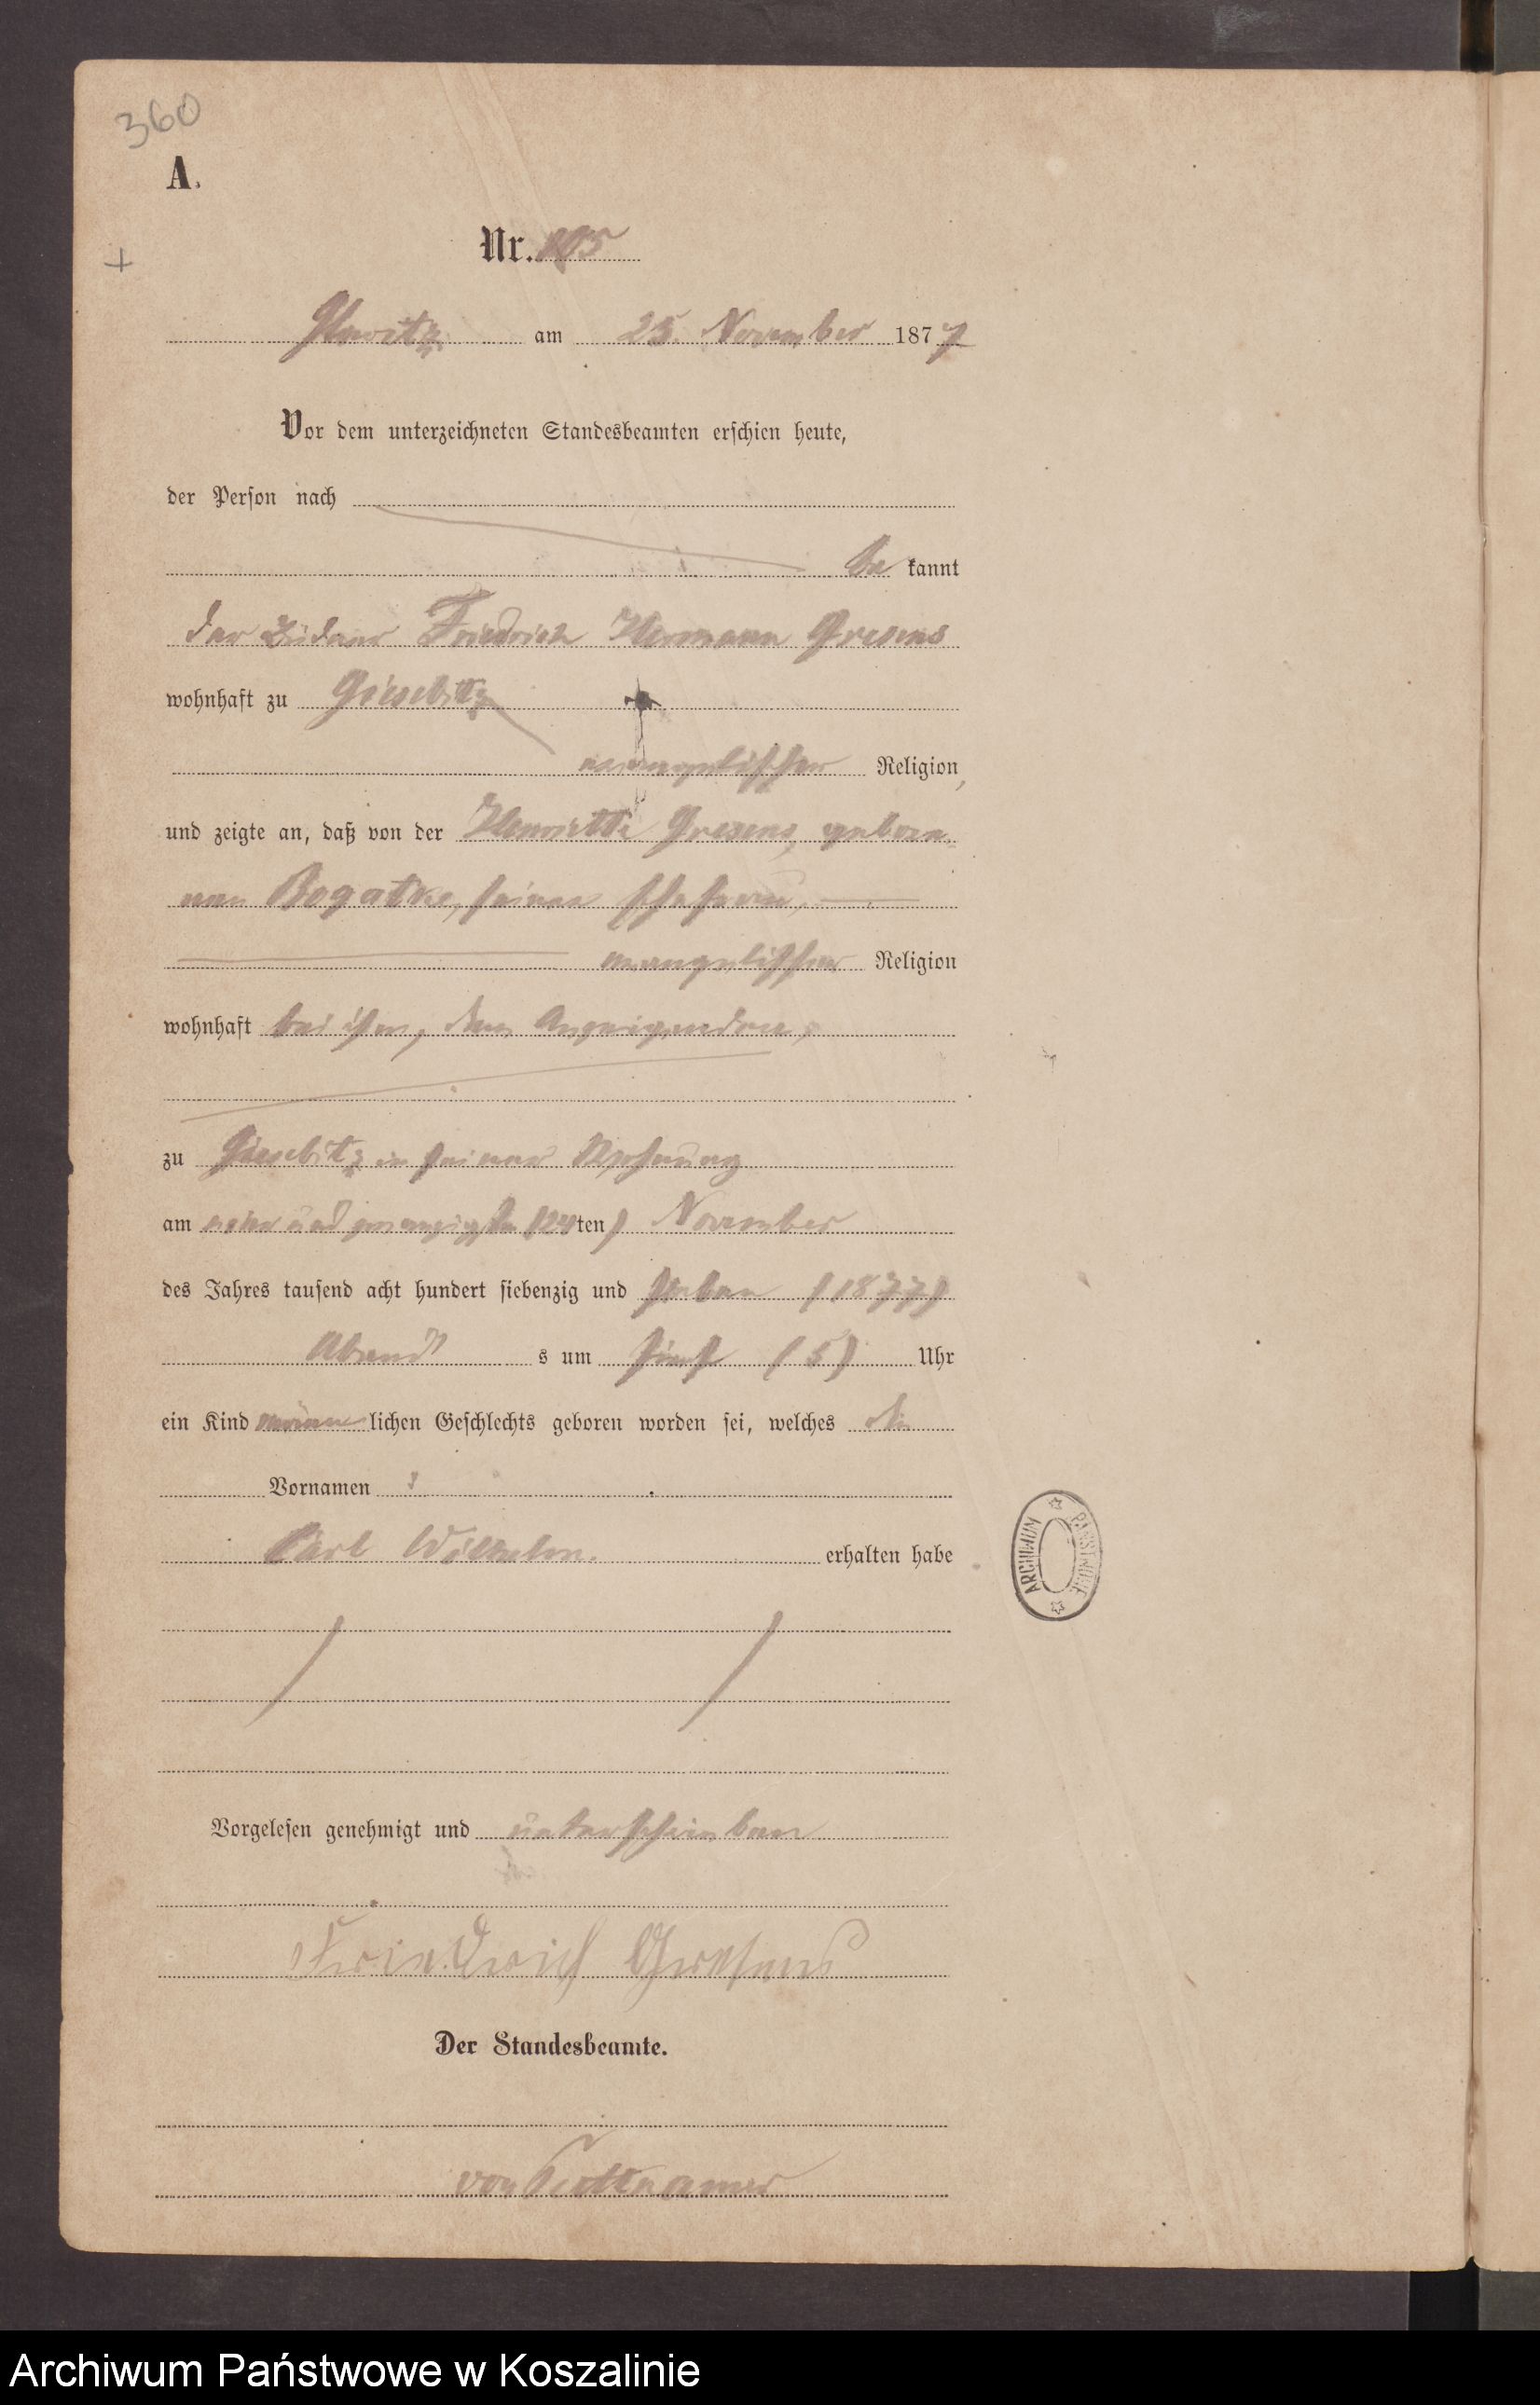 360
A.
Nr. 105
am 25. November 1877
Vor dem unterzeichneten Standesbeamten erschien heute,
der Person nach
be kannt
der Friedrich Hermann Gresens
wohnhaft zu Giesebitz
evangelischer Religion,
und zeigte an, daß von der Henriette Gresens, gebore-
nen Bogatke, seiner Ehefrau,
evangelischer Religion
wohnhaft bei ihm, dem Anzeigenden,
zu Giesebitz in seiner Wohnung
am vier und zwanzigsten (24ten) November
des Jahres tausend acht hundert siebenzig und sieben (1877)
Abend s um fünf (5) Uhr
ein Kind männ lichen Geschlechts geboren worden sei, welches die
Vornamen
Carl Wilhelm. erhalten habe
Vorgelesen genehmigt und unterschrieben
Friedrich Gresens
Der Standesbeamte.
von
ARCHIWUM PAŃSTWOWE
Archiwum Państwowe w Koszalinie